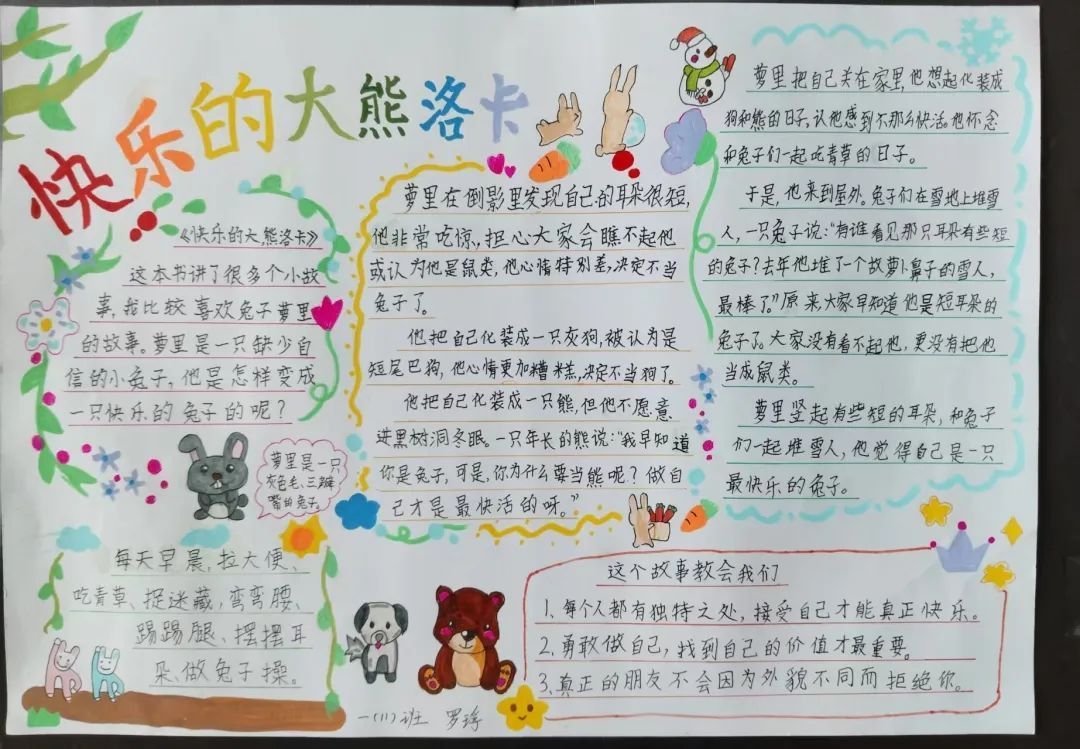 快乐的大熊洛卡
《快乐的大熊洛卡》
这本书讲了很多个小故
事,我比较喜欢兔子萝里
的故事。萝里是一只缺少自
信的小兔子,他是怎样变成
一只快乐的兔子的呢?
萝里是一只
灰色毛、三瓣
嘴的兔子。
每天早晨、拉大便、
吃青草、捉迷藏,弯弯腰、
踢踢腿、摆摆耳
朵、做兔子操。
萝里在倒影里发现自己的耳朵很短,
他非常吃惊,担心大家会瞧不起他
或认为他是鼠类,他心情特别差,决定不当
兔子了。
他把自己化装成一只灰狗,被认为是
短尾巴狗,他心情更加糟糕,决定不当狗了。
他把自己化装成一只熊,但他不愿意
进黑树洞冬眠。一只年长的熊说:“我早知道
你是兔子,可是,你为什么要当熊呢?做自
己才是最快活的呀。”
萝里把自己关在家里,他想起化装成
狗和熊的日子,认他感到不那么快活。他怀念
和兔子们一起吃青草的日子。
于是,他来到屋外。兔子们在雪地上堆雪
人,一只兔子说:“有谁看见那只耳朵有些短
的兔子?去年他堆了一个胡萝卜鼻子的雪人,
最棒了”原来,大家早知道他是短耳朵的
兔子了。大家没有看不起他,更没有把他
当成鼠类。
萝里竖起有些短的耳朵,和兔子
们一起堆雪人,他觉得自己是一只
最快乐的兔子。
这个故事教会我们
1、每个人都有独特之处,接受自己才能真正快乐。
2、勇敢做自己,找到自己的价值才最重要。
3、真正的朋友不会因为外貌不同而拒绝你。
一(11)班 罗